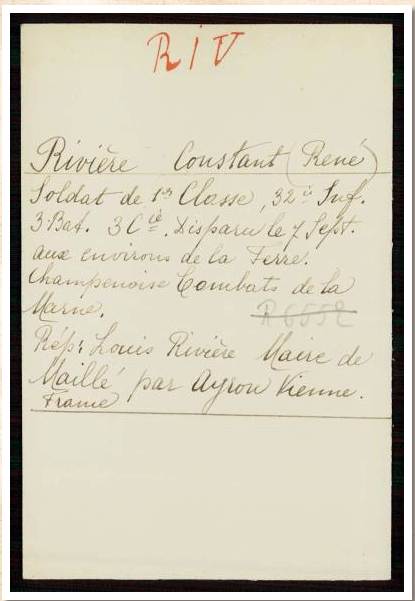 RIV
Rivière Constant (René)
Soldat de 1re Classe, 32è Inf.
3 Bat. 3 Cie. Disparu le 7 Sept.
aux environs de la Ferre.
Champenoise Combats de la
Marne.
R 6552
Rép: Louis Rivière Maire de
Maillé par Ayron Vienne.
France